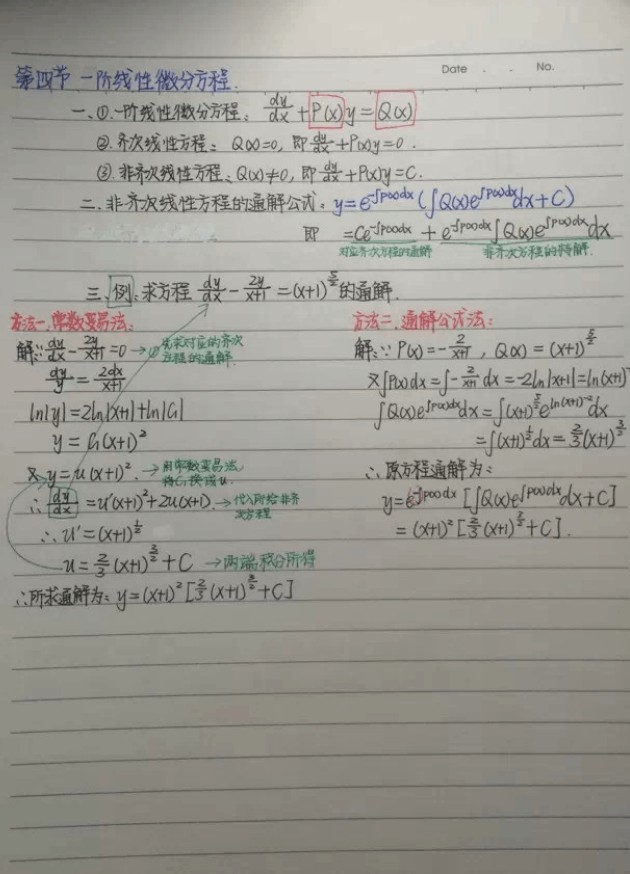 Date . . No.
第四节 一阶线性微分方程.
一、①.一阶线性微分方程: dy/dx + P(x)y = Q(x)
②.齐次线性方程: Q(x)=0, 即 dy/dx + P(x)y=0.
③.非齐次线性方程: Q(x)≠0, 即 dy/dx + P(x)y=C.
二、非齐次线性方程的通解公式: y=e^{-∫P(x)dx}(∫Q(x)e^{∫P(x)dx}dx+C)
即 =Ce^{-∫P(x)dx} + e^{-∫P(x)dx}∫Q(x)e^{∫P(x)dx}dx
对应齐次方程的通解 非齐次方程的特解.
三、例: 求方程 dy/dx - 2y/(x+1) = (x+1)^{5/2} 的通解.
方法一、常数变易法:
解: ∵ dy/dx - 2y/(x+1) = 0 → ① 先求对应的齐次
方程的通解.
dy/y = 2dx/(x+1)
ln|y| = 2ln|x+1| + ln|C₁|
y = C₁(x+1)²
又 y = u(x+1)². → 用常数变易法,
将C₁换成u.
∴ dy/dx = u'(x+1)² + 2u(x+1). → 代入所给非齐
次方程
∴ u' = (x+1)^{1/2}
u = 2/3 (x+1)^{3/2} + C → 两端积分所得
∴ 所求通解为: y = (x+1)² [2/3 (x+1)^{3/2} + C]
方法二、通解公式法:
解: ∵ P(x) = -2/(x+1), Q(x) = (x+1)^{5/2}
又∫P(x)dx = ∫-2/(x+1) dx = -2ln|x+1| = ln(x+1)
∫Q(x)e^{∫P(x)dx}dx = ∫(x+1)^{5/2} e^{ln(x+1)^{-2}}dx
= ∫(x+1)^{1/2}dx = 2/3 (x+1)^{3/2}
∴ 原方程通解为:
y = e^{-∫P(x)dx} [∫Q(x)e^{∫P(x)dx}dx + C]
= (x+1)² [2/3 (x+1)^{3/2} + C].